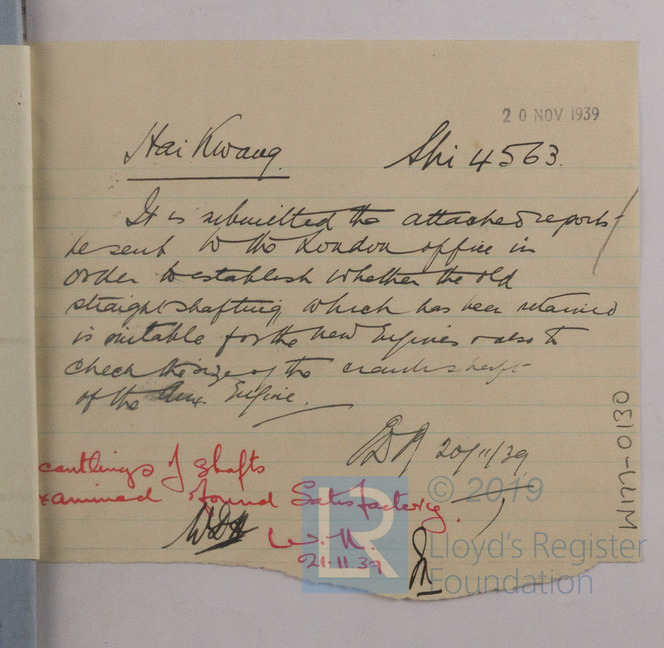 20 NOV 1939
Hai Kwang. Shi 4563.
It is submitted the attached reports
be sent to the London office in
order to establish whether the old
straight shafting which has been retained
is suitable for the new Engines & also to
check the size of the crank shaft
of the Aux. Engine.
20/11/39
cantlings of shafts
xamined & found Satisfactory.
W.K.
21.11.39
W177-0130
© 2019
LR
Lloyd's Register
Foundation